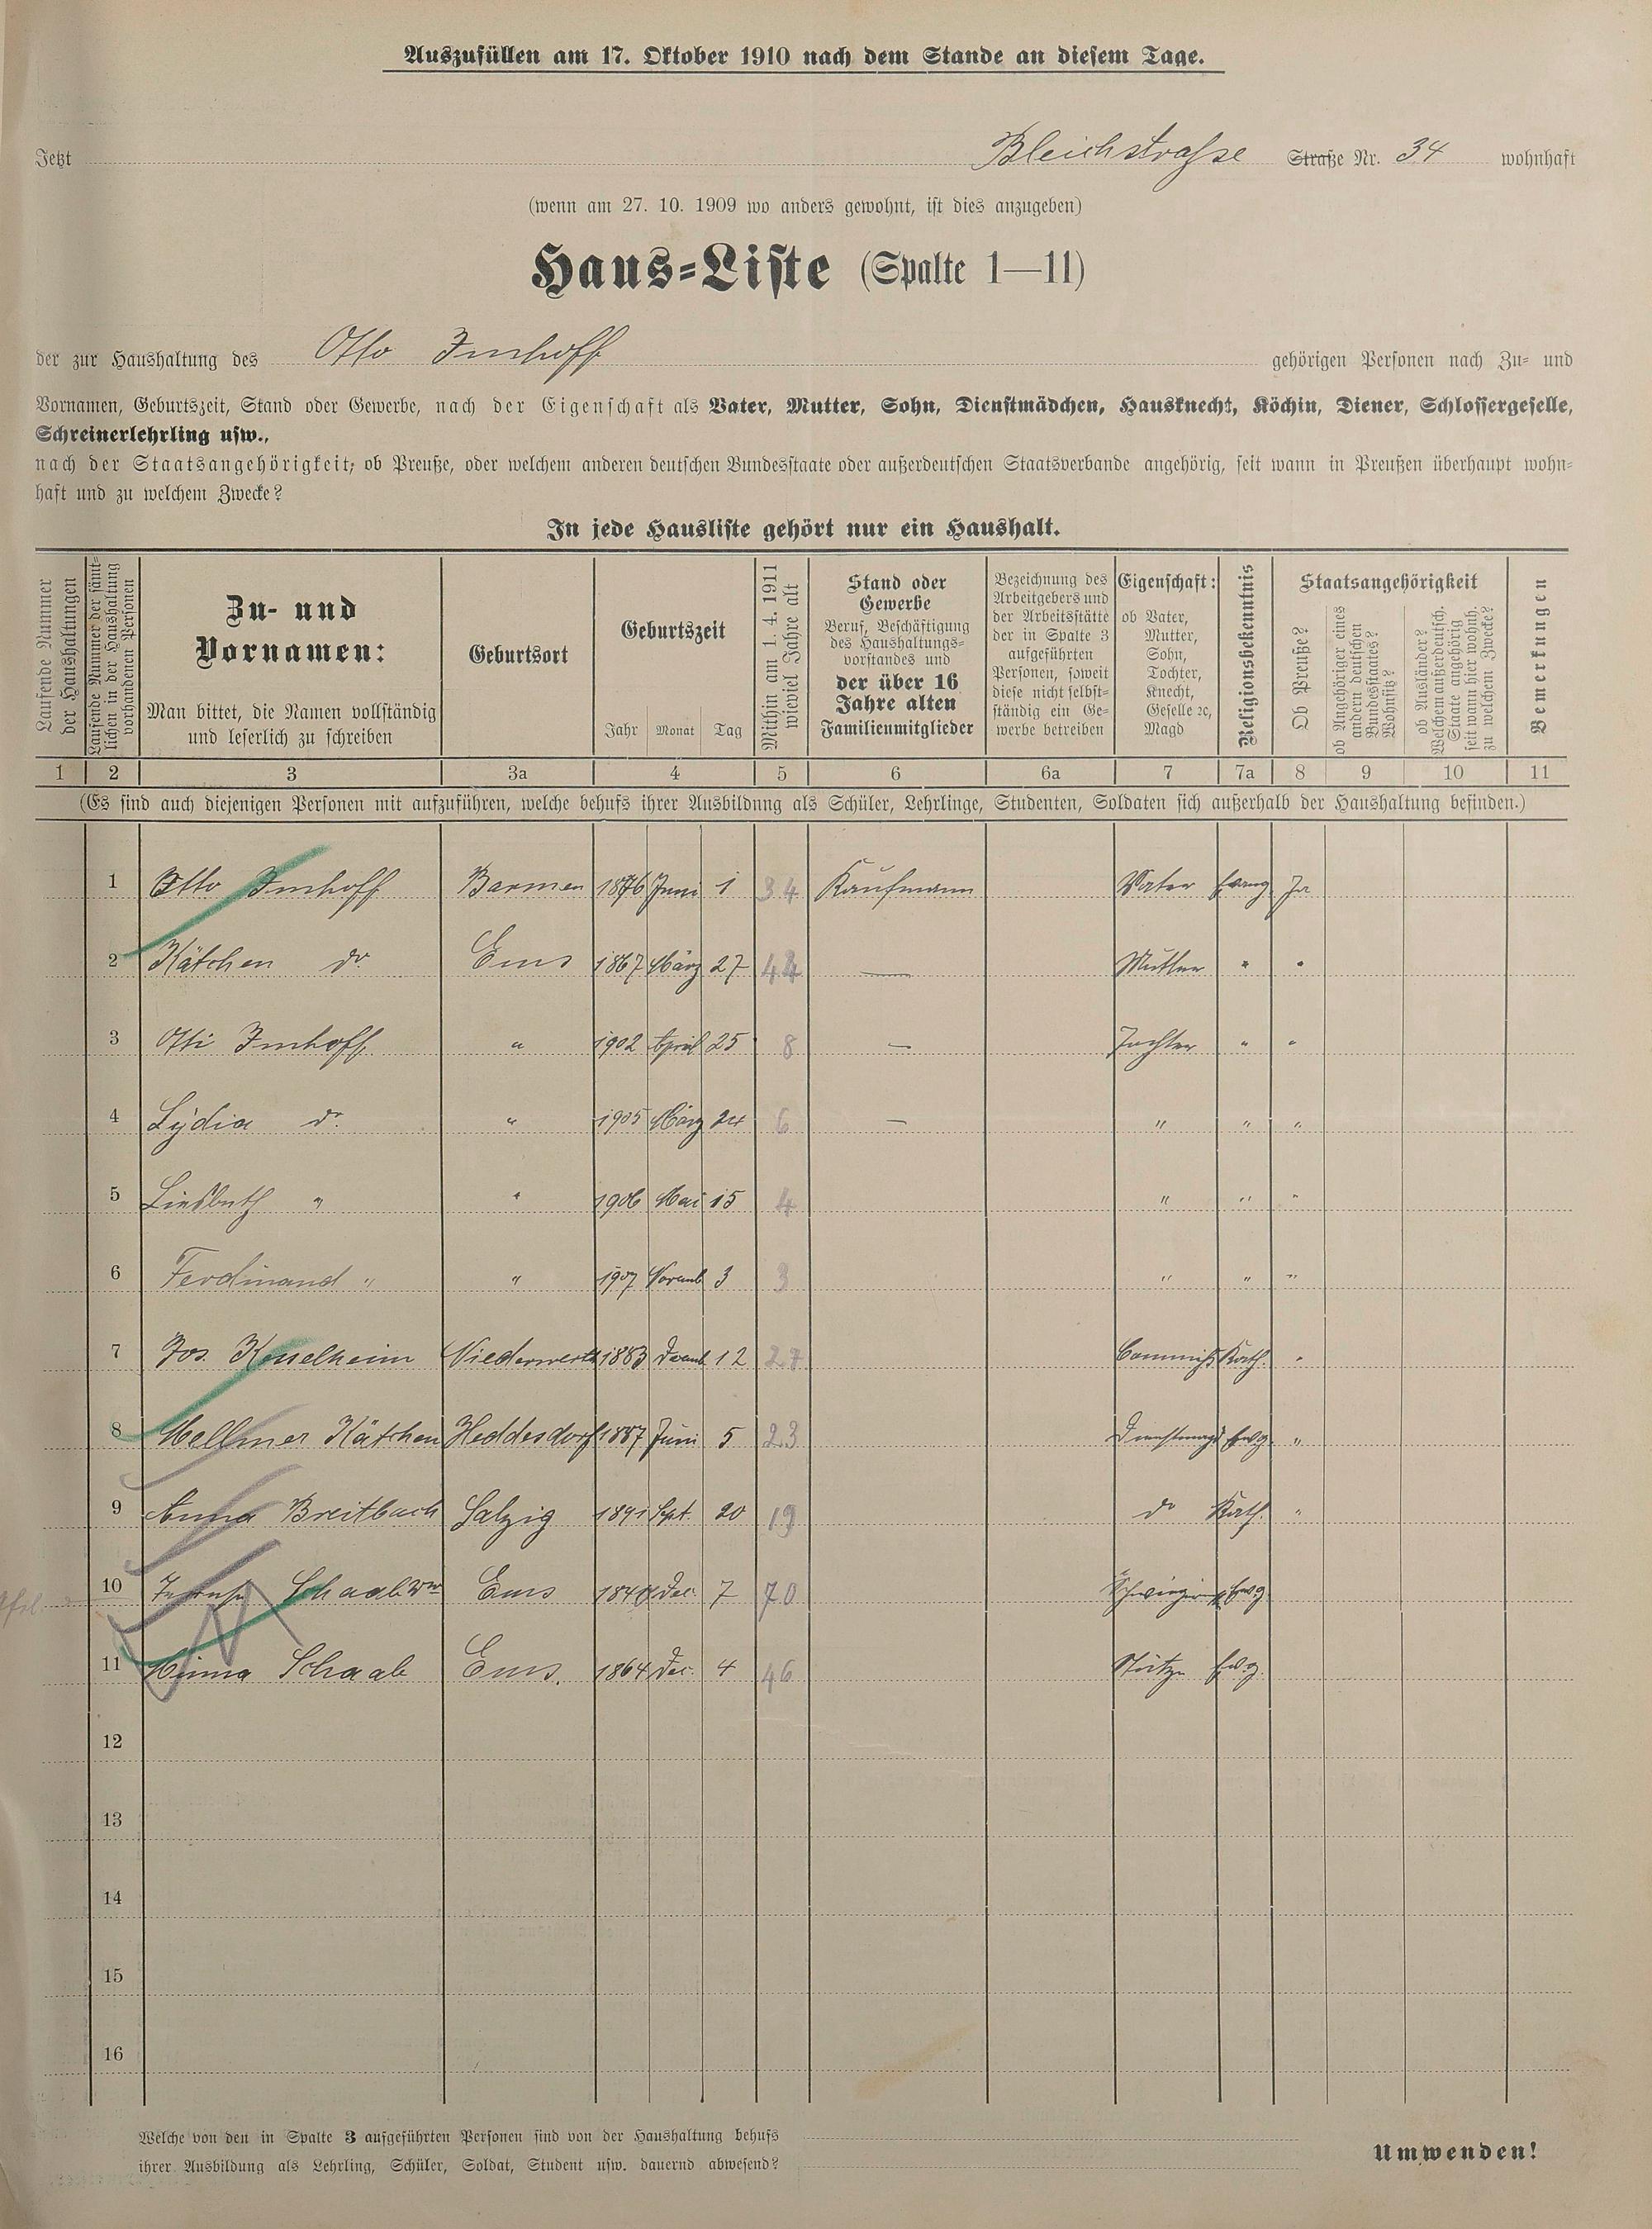 Auszufüllen am 17. Oktober 1910 nach dem Stande an diesem Tage.
Jetzt Bleichstraße Straße Nr. 34 wohnhaft
(wenn am 27. 10. 1909 wo anders gewohnt, ist dies anzugeben)
Haus=Liste (Spalte 1—11)
der zur Haushaltung des Otto Imhoff gehörigen Personen nach Zu= und
Vornamen, Geburtszeit, Stand oder Gewerbe, nach der Eigenschaft als Vater, Mutter, Sohn, Dienstmädchen, Hausknecht, Köchin, Diener, Schlossergeselle,
Schreinerlehrling usw.,
nach der Staatsangehörigkeit, ob Preuße, oder welchem anderen deutschen Bundesstaate oder außerdeutschen Staatsverbande angehörig, seit wann in Preußen überhaupt wohn=
haft und zu welchem Zwecke?
In jede Hausliste gehört nur ein Haushalt.
Laufende Nummer
der Haushaltungen
Laufende Nummer der sämt=
lichen in der Haushaltung
vorhandenen Personen
Zu- und
Vornamen:
Man bittet, die Namen vollständig
und leserlich zu schreiben
Geburtsort
Geburtszeit
Jahr Monat Tag
Mithin am 1. 4. 1911
wieviel Jahre alt
Stand oder
Gewerbe
Beruf, Beschäftigung
des Haushaltungs=
vorstandes und
der über 16
Jahre alten
Familienmitglieder
Bezeichnung des
Arbeitgebers und
der Arbeitsstätte
der in Spalte 3
aufgeführten
Personen, soweit
diese nicht selbst=
ständig ein Ge=
werbe betreiben
Eigenschaft:
ob Vater,
Mutter,
Sohn,
Tochter,
Knecht,
Geselle ꝛc,
Magd
Religionsbekenntnis
Staatsangehörigkeit
Ob Preuße?
ob Angehöriger eines
andern deutschen
Bundesstaates?
Wohnsitz?
ob Ausländer?
Welchem außerdeutsch.
Staate angehörig
seit wann hier wohnh.
zu welchem Zwecke?
Bemerkungen
1 2 3 3a 4 5 6 6a 7 7a 8 9 10 11
(Es sind auch diejenigen Personen mit aufzuführen, welche behufs ihrer Ausbildung als Schüler, Lehrlinge, Studenten, Soldaten sich außerhalb der Haushaltung befinden.)
1 Otto Imhoff Barmen 1876 Juni 1 34 Kaufmann Vater Evang Ja
2 Kätchen do. Ems 1867 März 27 44 — Mutter " "
3 Otti Imhoff " 1902 April 25 8 — Tochter " "
4 Lydia do. " 1905 März 24 6 — " " "
5 Liesbeth " " 1906 Mai 15 4 " " "
6 Ferdinand " " 1907 Novemb 3 3 " " "
7 Jos. Kesselheim Niederwerth 1883 Dezemb 12 27 Commis Kath. "
8 Mellmer Kätchen Heddesdorf 1887 Juni 5 23 Dienstmagd Evg. "
9 Anna Breitbach Salzig 1891 Sept. 20 19 do Kath. "
10 Schaab Wwe Ems Dec. 7 70 Evg.
11 Minna Schaab Ems. 1864 Dec. 4 46 Stütze Evg.
12
13
14
15
16
Welche von den in Spalte 3 aufgeführten Personen sind von der Haushaltung behufs
ihrer Ausbildung als Lehrling, Schüler, Soldat, Student usw. dauernd abwesend?
Umwenden!